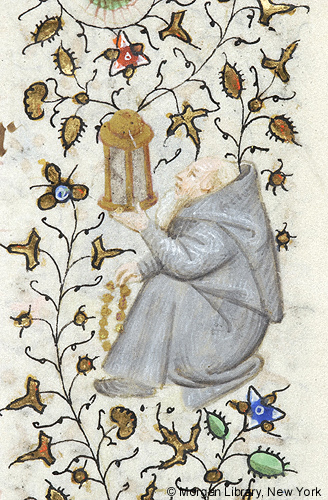 © Morgan Library, New York